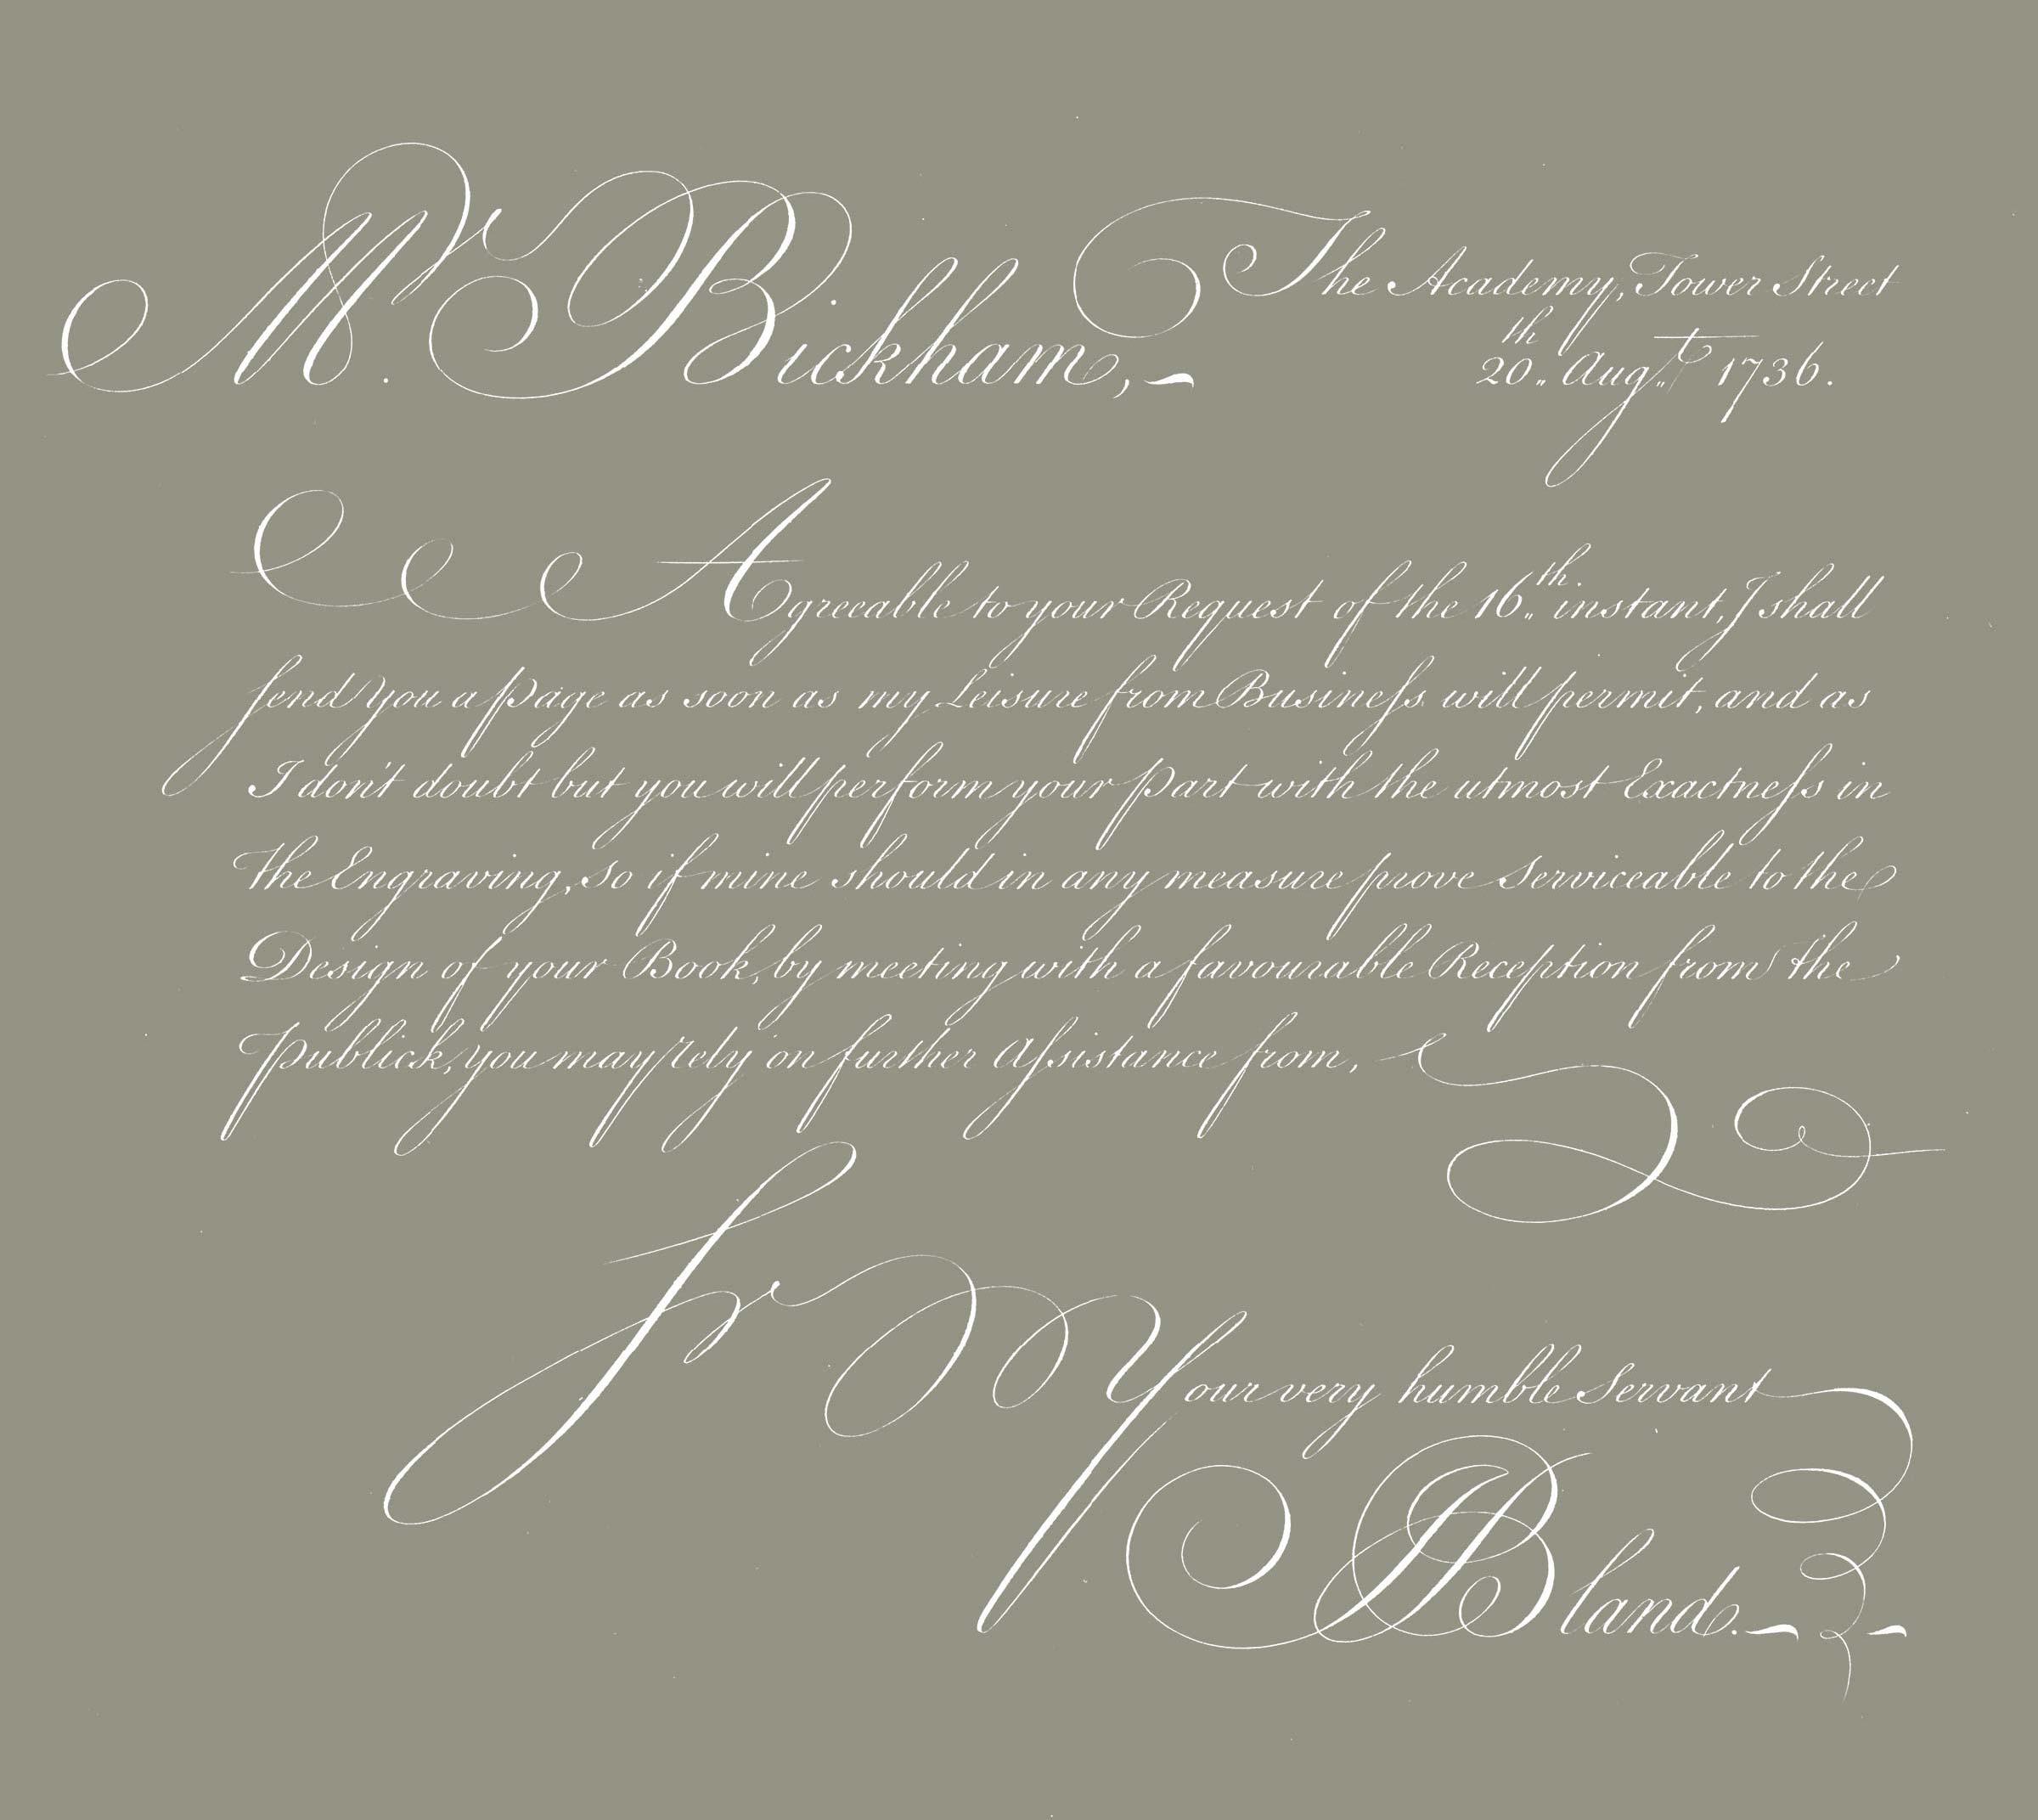 Mr. Bickham, The Academy, Tower Street
20th Augt. 1736.
Agreeable to your Request of the 16th. instant, I shall
send you a page as soon as my Leisure from Business will permit, and as
I don't doubt but you will perform your part with the utmost Exactness in
the Engraving, so if mine should in any measure prove serviceable to the
Design of your Book, by meeting with a favourable Reception from the
publick, you may rely on further Assistance from,
Sr
Your very humble Servant
Bland.